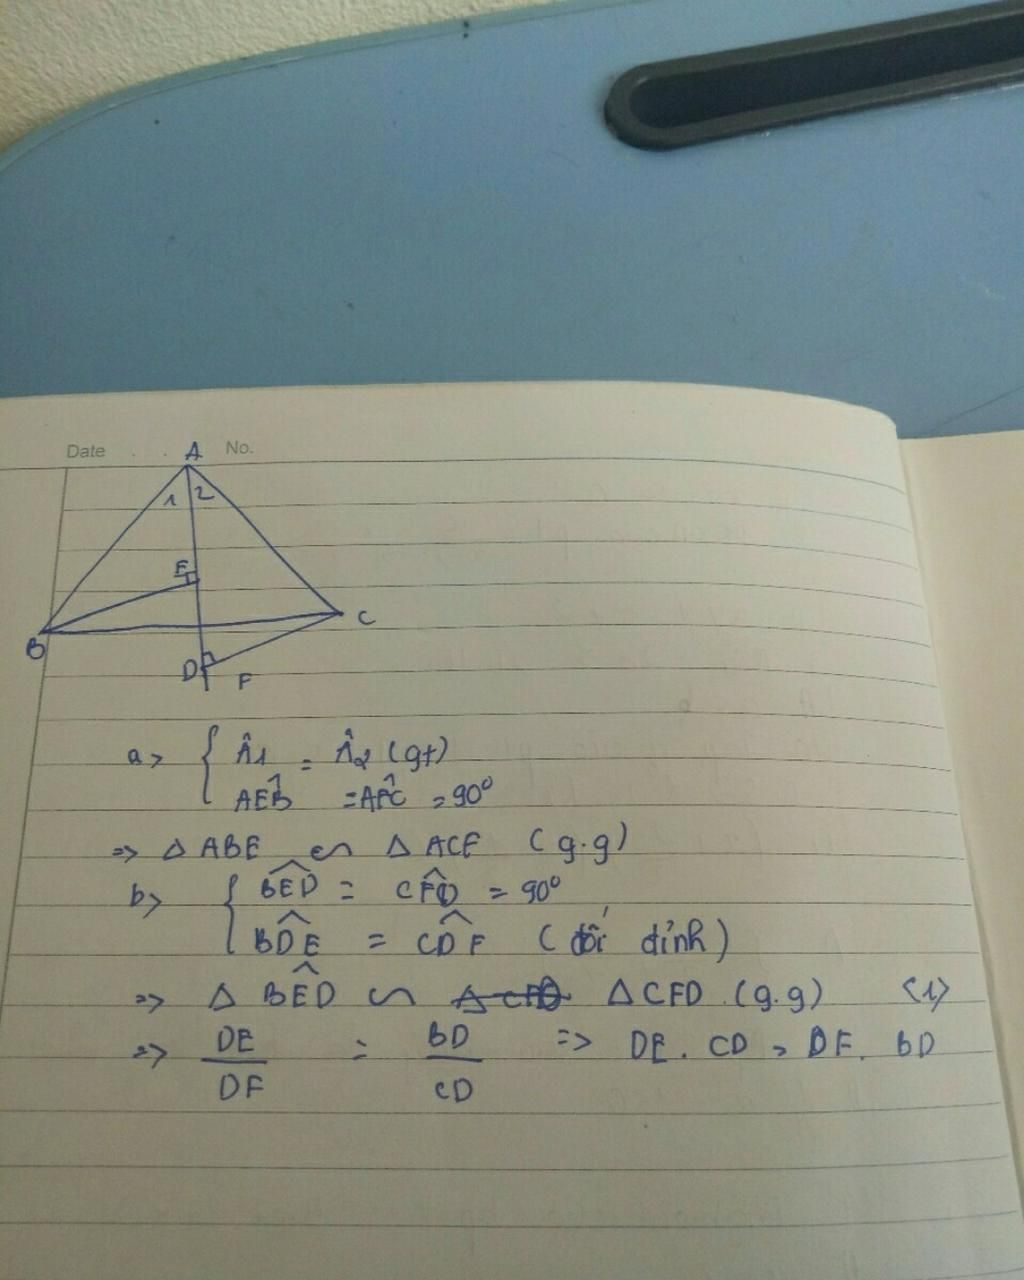 Date . . No.
A
1 2
E
B
C
D F
a> { Â1 = Â2 (gt)
AÊB = AF̂C = 90°
=> Δ ABE ∽ Δ ACF (g.g)
b> { BÊD = CF̂D = 90°
BD̂E = CD̂F (đối đỉnh)
=> Δ BÊD ∽ Δ CFD Δ CFD (g.g) <1>
=> DE/DF = BD/CD => DE . CD = DF . BD